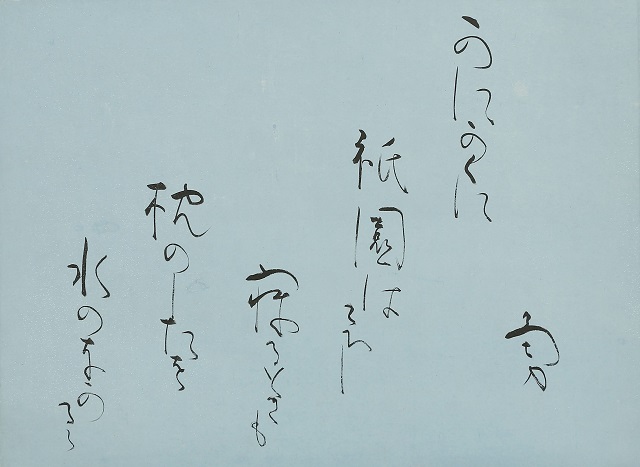 かにかくに
祇園は
こひし
寝るときも
枕のしたを
水のなかるゝ
勇